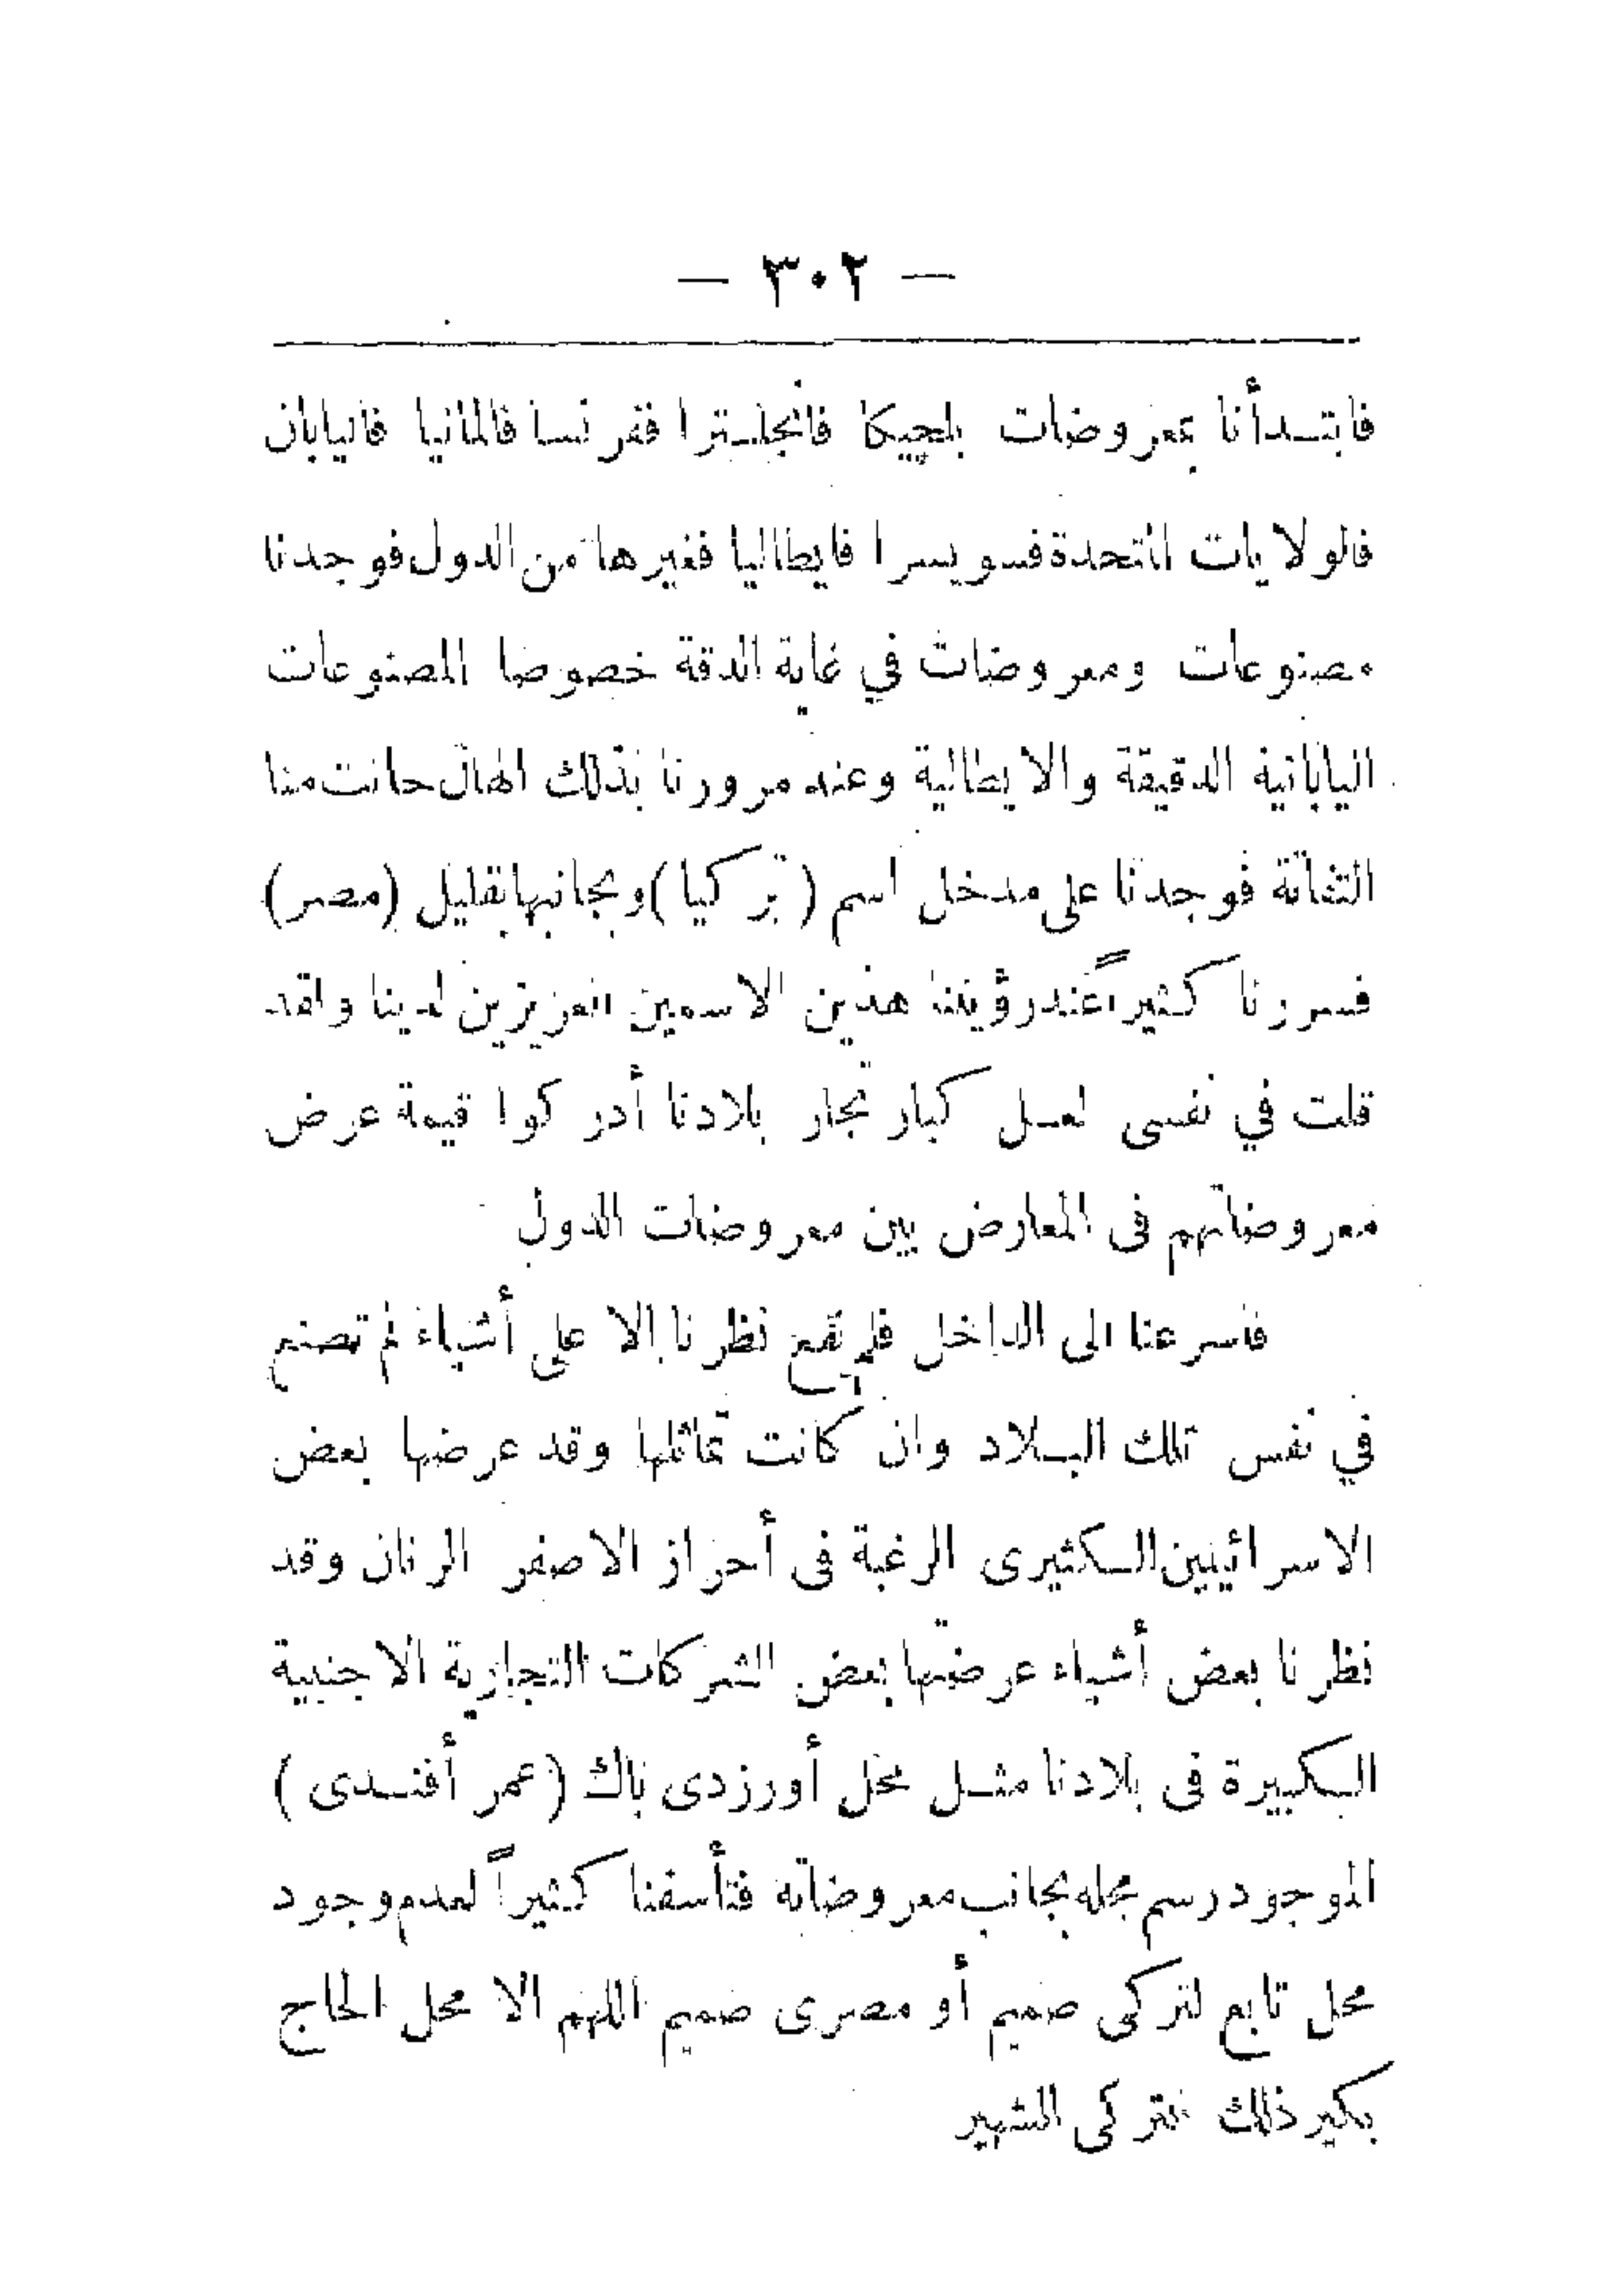 — ٣٠٢ —
فابتدأنا بمعروضات بلجيكا فانجلترا ففرنسا فالمانيا فاليابان
فالولايات المتحدة فسويسرا فايطاليا فغيرها من الدول فوجدنا
مصنوعات ومعروضات في غاية الدقة خصوصا المصنوعات
اليابانية الدقيقة والايطالية وعند مرورنا بذلك الهال حانت منا
التفاتة فوجدنا على مدخل اسم (تركيا) وبجانبها بقليل (مصر)
فسررنا كثيراً عند رؤيتنا هذين الاسمين العزيزين لدينا ولقد
قلت في نفسى لعل كبار تجار بلادنا أدركوا قيمة عرض
معروضاتهم فى المعارض بين معروضات الدول
فاسرعنا الى الداخل فلم يقع نظرنا إلا على أشياء لم تصنع
في نفس تلك البلاد وان كانت تماثلها وقد عرضها بعض
الاسرائيليين الكثيرى الرغبة فى أحراز الاصفر الرنان وقد
نظرنا بعض أشياء عرضتها بعض الشركات التجارية الاجنبية
الكبيرة فى بلادنا مثل محل أورزدى باك (عمر أفندى)
الموجود رسم محله بجانب معروضاته فتأسفنا كثيراً لعدم وجود
محل تابع لتركى صميم أو مصرى صميم اللهم الا محل الحاج
بكير ذلك التركى الشهير